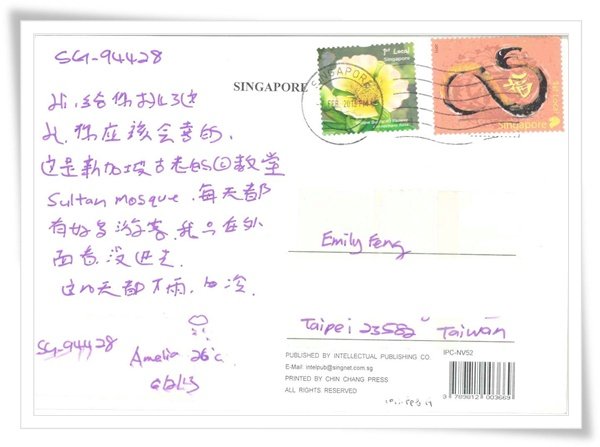 SG-94428
Hi, 给你挑了这
片, 你应该会喜的,
这是新加坡古老的回教堂
Sultan mosque, 每天都
有好多游客, 我只在外
面看, 没进去.
这几天都下雨,
SG-94428
Amelia 26°c
6/2/13
SINGAPORE
1st Local
Singapore
SINGAPORE
FEB 2013
福
Singapore
Emily Feng
Taipei 23582 Taiwan
PUBLISHED BY INTELLECTUAL PUBLISHING CO.
IPC-NV52
E-Mail: intelpub@singnet.com.sg
PRINTED BY CHIN CHANG PRESS
ALL RIGHTS RESERVED
9 789812 003669